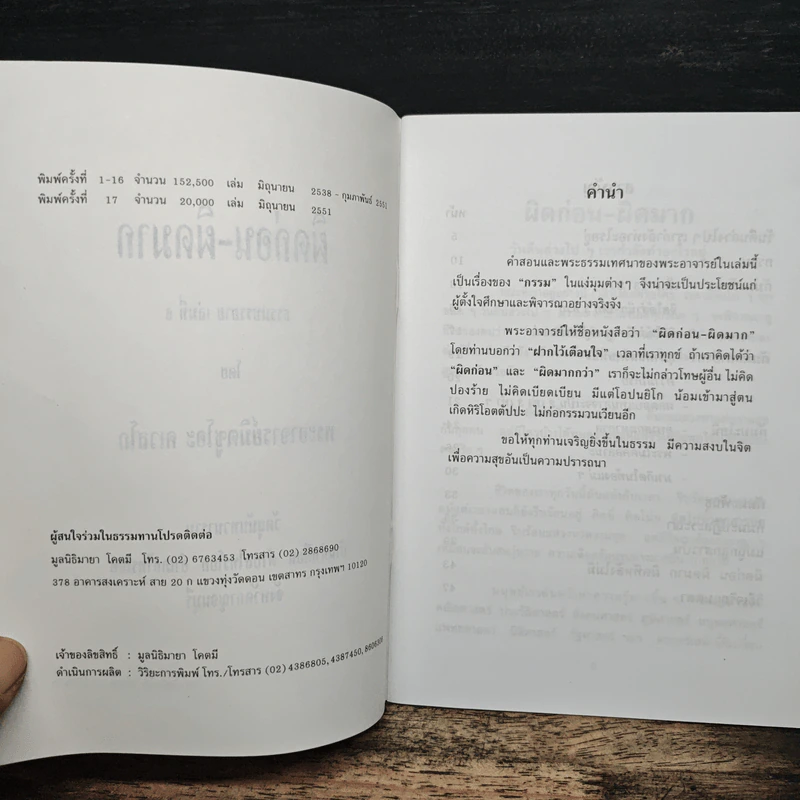 พิมพ์ครั้งที่ 1-16 จำนวน 152,500 เล่ม มิถุนายน 2538 - กุมภาพันธ์ 2551
พิมพ์ครั้งที่ 17 จำนวน 20,000 เล่ม มิถุนายน 2551
ผู้สนใจร่วมในธรรมทานโปรดติดต่อ
มูลนิธิมายา โคตมี โทร. (02) 6763453 โทรสาร (02) 2868690
378 อาคารสงเคราะห์ สาย 20 ก แขวงทุ่งวัดดอน เขตสาทร กรุงเทพฯ 10120
เจ้าของลิขสิทธิ์ : มูลนิธิมายา โคตมี
ดำเนินการผลิต : วิริยะการพิมพ์ โทร./โทรสาร (02) 4386805, 4387450,
คำนำ
คำสอนและพระธรรมเทศนาของพระอาจารย์ในเล่มนี้
เป็นเรื่องของ "กรรม" ในแง่มุมต่างๆ จึงน่าจะเป็นประโยชน์แก่
ผู้ตั้งใจศึกษาและพิจารณาอย่างจริงจัง
พระอาจารย์ให้ชื่อหนังสือว่า "ผิดก่อน-ผิดมาก"
โดยท่านบอกว่า "ฝากไว้เตือนใจ" เวลาที่เราทุกข์ ถ้าเราคิดได้ว่า
"ผิดก่อน" และ "ผิดมากกว่า" เราก็จะไม่กล่าวโทษผู้อื่น ไม่คิด
ปองร้าย ไม่คิดเบียดเบียน มีแต่โอปนยิโก น้อมเข้ามาสู่ตน
เกิดหิริโอตตัปปะ ไม่ก่อกรรมวนเวียนอีก
ขอให้ทุกท่านเจริญยิ่งขึ้นในธรรม มีความสงบในจิต
เพื่อความสุขอันเป็นความปรารถนา